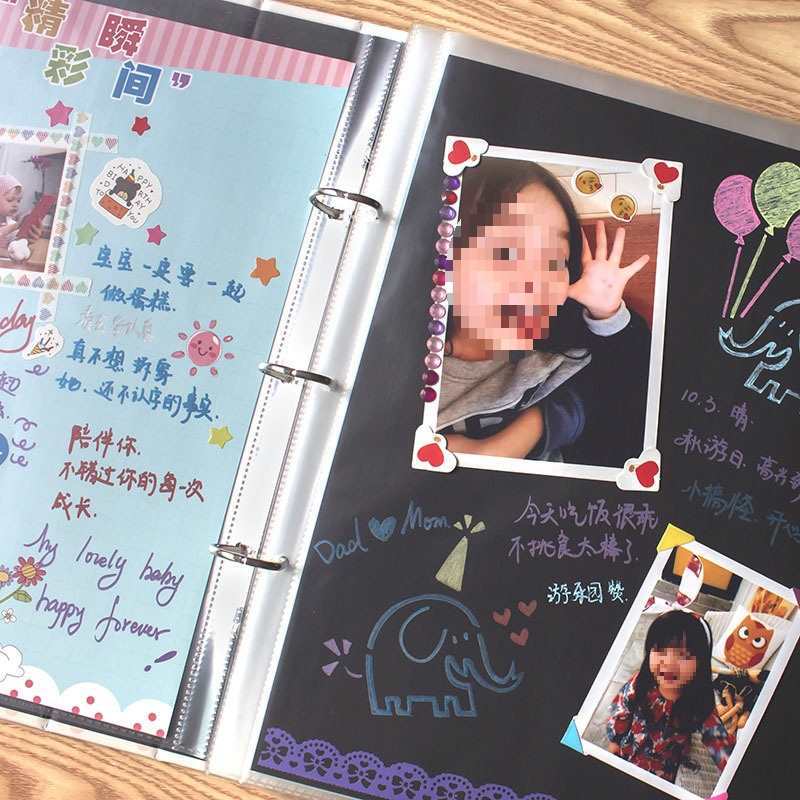 “精瞬
彩间”
HAPPY
BIRTHDAY
TO YOU
宝宝一定要一起
做蛋糕.
真不想拆穿
她.还不认字的事实.
陪伴你.
不错过你的每一次
成长.
My lovely baby
happy forever
!
day
10.3. 晴.
秋游日.高兴
小搞怪.开心
Dad Mom
今天吃饭很乖
不挑食太棒了.
游乐园赞.